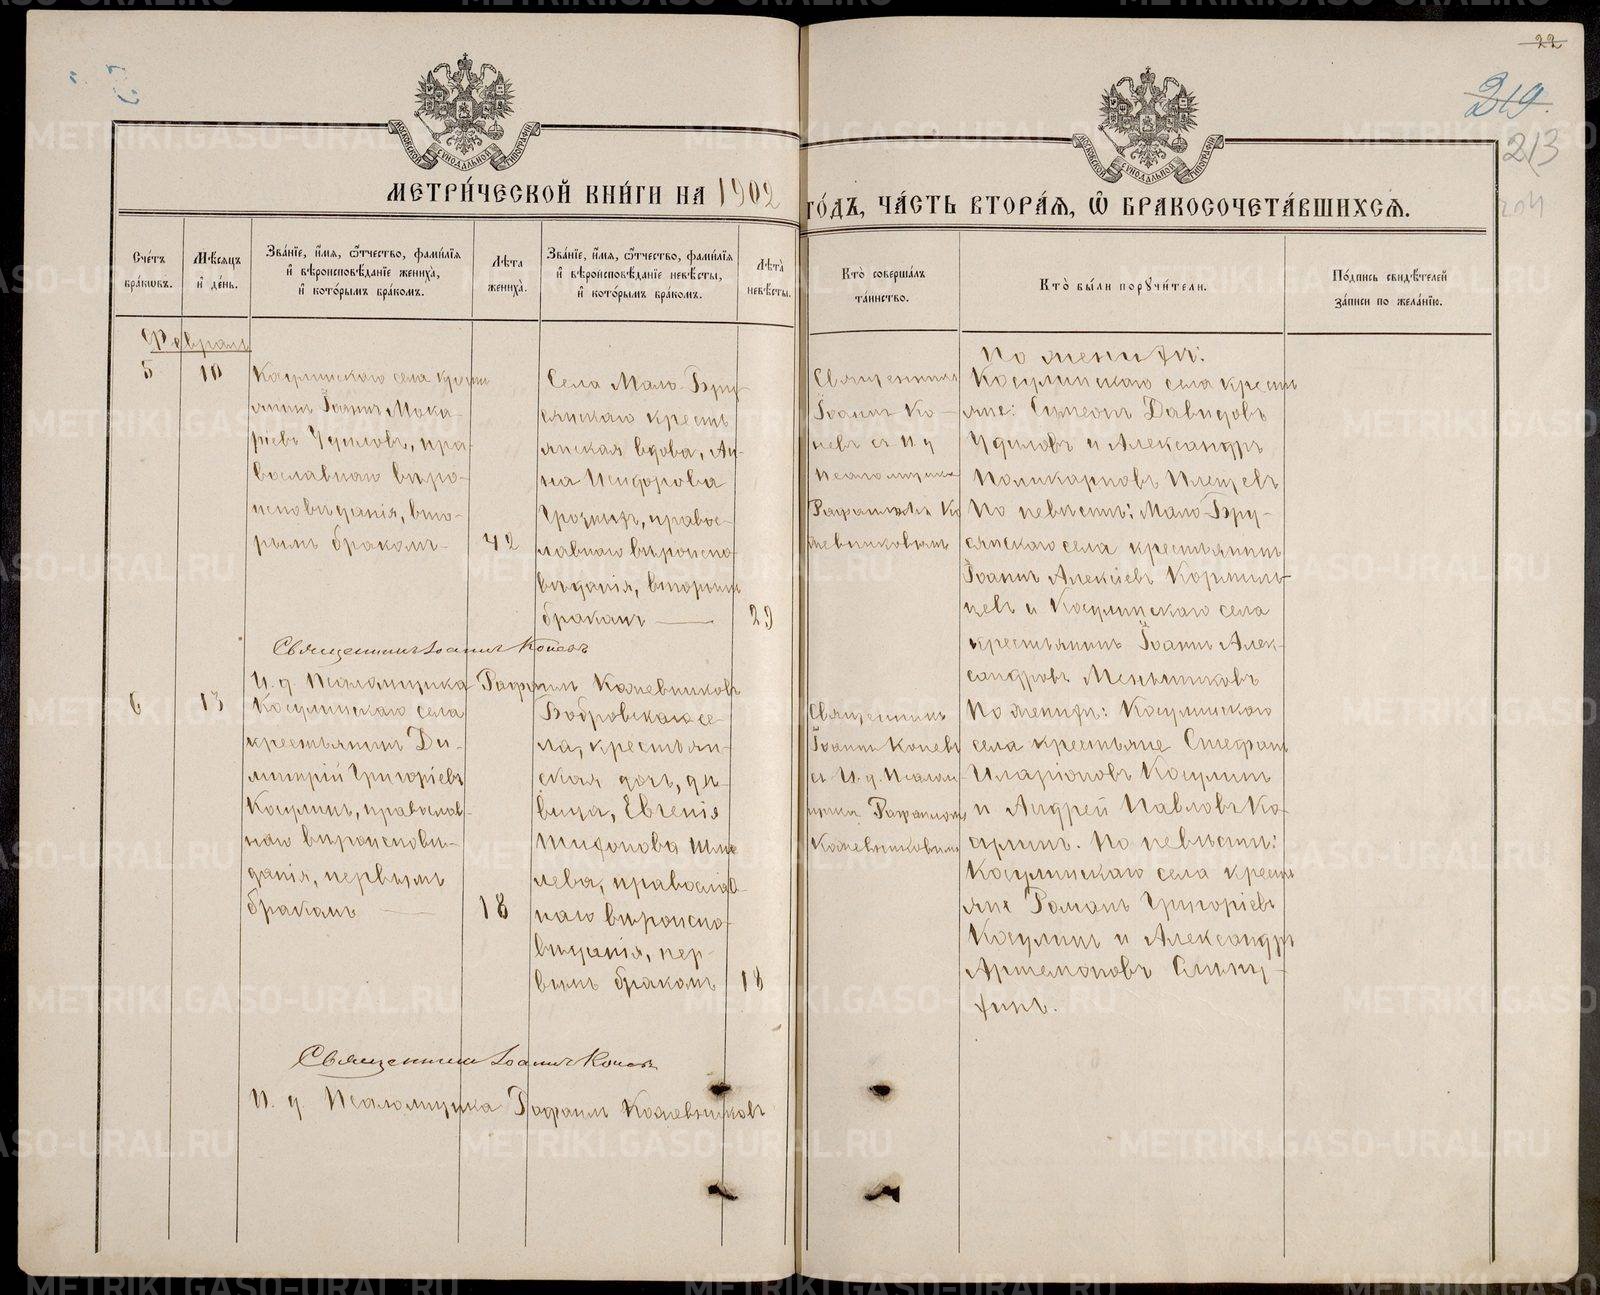 22
219
213
204
МОСКОВСКОЙ СѴНОДАЛЬНОЙ ТИПОГРАФІИ
МОСКОВСКОЙ СѴНОДАЛЬНОЙ ТИПОГРАФІИ
МЕТРИ́ЧЕСКОЙ КНИ́ГИ НА 1902
ГО́ДЪ, ЧА́СТЬ ВТОРА́Я, Ѽ БРАКОСОЧЕТА́ВШИХСЯ.
Сче́тъ бра́кѡвъ.
Мѣ́сяцъ и҆ де́нь.
Зва́нїе, и҆́мя, ѻ҆́тчество, фами́лїя и҆ вѣроисповѣ́данїе жениха̀, и҆ кото́рымъ бра́комъ.
Лѣ́та жениха̀.
Зва́нїе, и҆́мя, ѻ҆́тчество, фами́лїя и҆ вѣроисповѣ́данїе невѣ́сты, и҆ кото́рымъ бра́комъ.
Лѣ́та невѣ́сты.
Кто̀ соверша́лъ та́инство.
Кто̀ бы́ли порꙋчи́тели.
По́дпись свидѣ́телей за́писи по жела́нїю.
Февраль
5
10
Косулинскаго села крестья
янинъ Іоаннъ Мока-
ріевъ Удиловъ, пра-
вославнаго вѣро-
исповѣданія, вто-
рымъ бракомъ
42
Села Мало-Бру-
сянскаго кресть
янская вдова, Ан-
на Исидорова
правос-
лавнаго вѣроиспо-
вѣданія, вторымъ
бракомъ
29
Священникъ
Іоаннъ Ко-
невъ съ И. д
Псаломщика
Рафаиломъ Ко
жевниковымъ
По женихѣ:
Косулинскаго села кресть
яне: Симеонъ Давидовъ
Удиловъ и Александръ
Поликарповъ Плещевъ
По невѣстѣ: Мало-Бру-
сянскаго села крестьянинъ
Іоаннъ Алексіевъ Кормиль-
цевъ и Косулинскаго села
крестьянинъ Іоаннъ Алек-
сандровъ Меньшиковъ
Священникъ Іоаннъ Коневъ
И. д. Псаломщика Рафаилъ Кожевниковъ
6
13
Косулинскаго села
крестьянинъ Ди-
митрій Григоріевъ
Косулинъ, православ-
наго вѣроисповѣ-
данія, первымъ
бракомъ
18
Бобровскаго се-
ла, крестьян-
ская дочь, дѣ-
вица, Евгенія
православ
наго вѣроиспо-
вѣданія, пер-
вымъ бракомъ
18
Священникъ
Іоаннъ Коневъ
съ И. д. Псалом-
щика Рафаиломъ
Кожевниковымъ
По женихѣ: Косулинскаго
села крестьяне Стефанъ
Иларіоновъ Косулинъ
и Андрей Павловъ Ко-
сулинъ. По невѣстѣ:
Косулинскаго села кресть
яне Романъ Григоріевъ
Косулинъ и Александръ
Артемоновъ
Священникъ Іоаннъ Коневъ
И. д Псаломщика Рафаилъ Кожевниковъ
METRIKI.GASO-URAL.RU